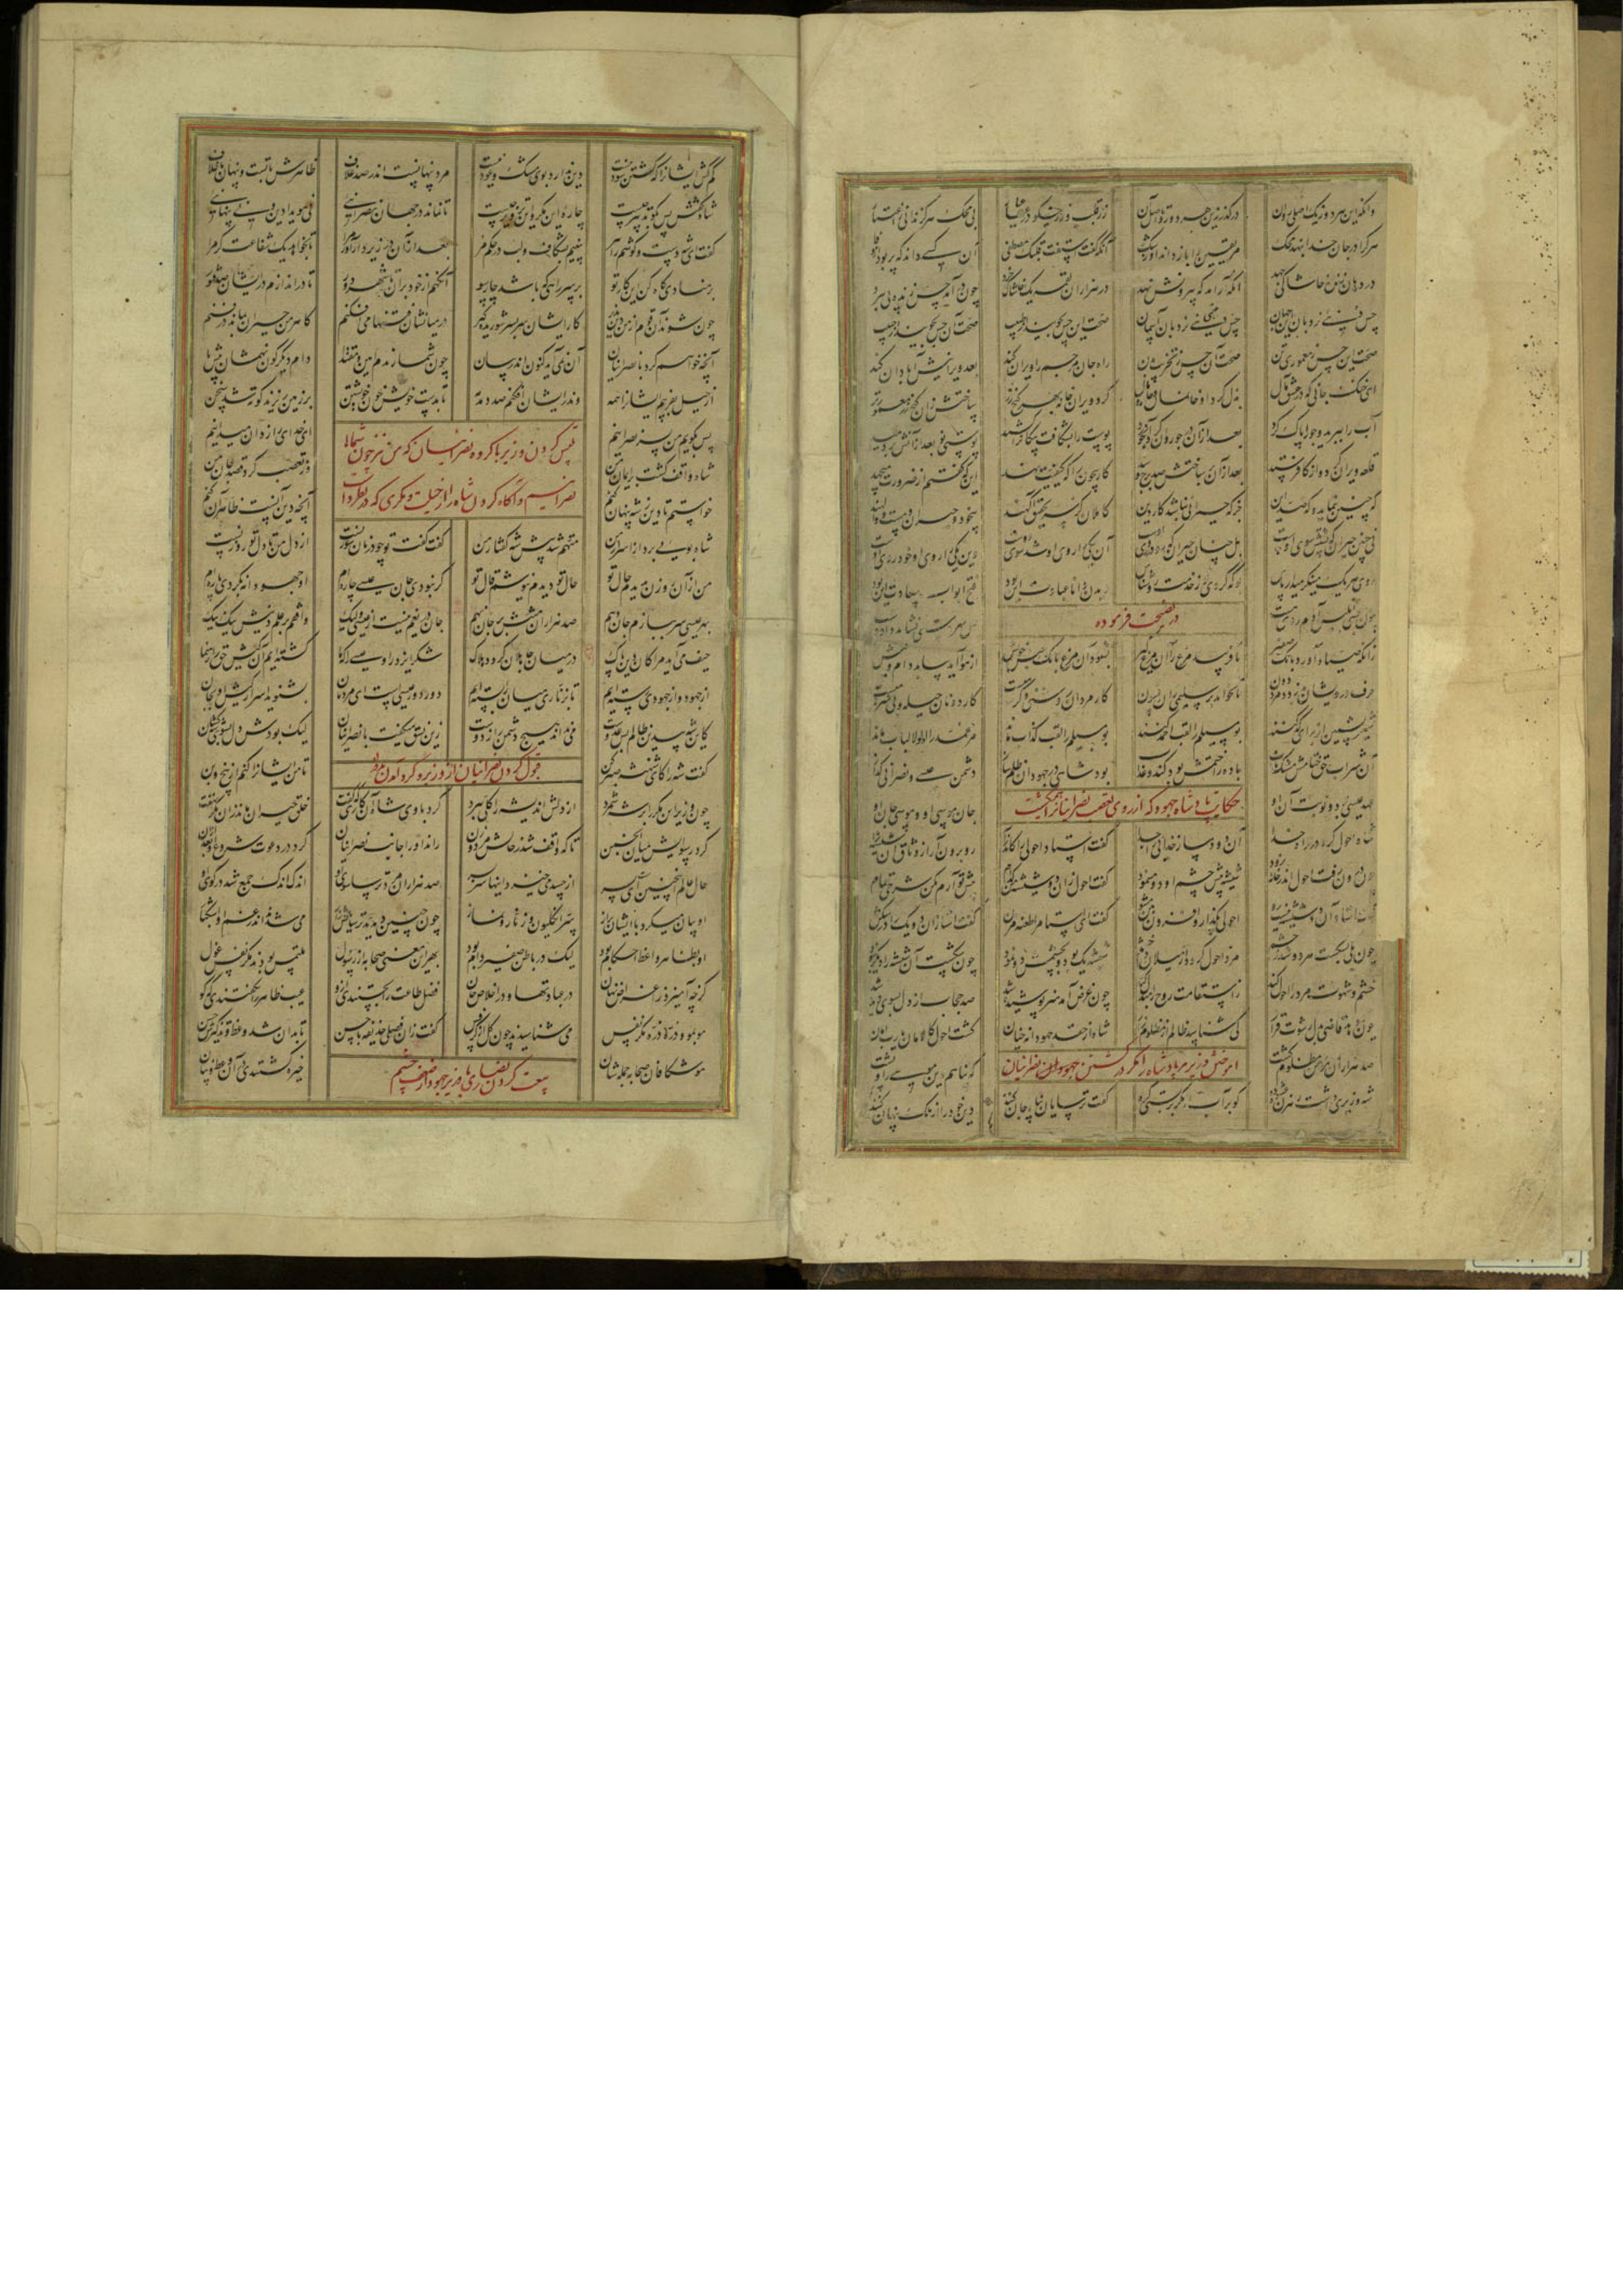 وانگه این هر دو ز یک اصلی روان درگذر زین هر دو رو تا اصل آن زر قلب و زر نیکو در عیار بی محک هرگز ندانی ز اعتبار
هر کرا در جان خدا بنهد محک مر یقین را باز داند او ز شک آنکه گفت استفت قلبک مصطفی آن کسی داند که پر بود از وفا
در دهان زنده خاشاکی جهد آنگه آرامد که بیرونش نهد در هزاران لقمه یک خاشاک خرد چون درآمد حس زنده پی ببرد
حس دنیی نردبان این جهان حس عقبی نردبان آسمان صحت این حس بجویید از طبیب صحت آن حس بجویید از حبیب
صحت این حس ز معموری تن صحت آن حس ز تخریب بدن راه جان مر جسم را ویران کند بعد ویرانیش آبادان کند
ای خنک جانی که در عشق مآل بذل کرد او خانمان و ملک و مال کرد ویران خانه بهر گنج زر ساختش زان گنج معمورتر
آب را ببرید و جو را پاک کرد بعد از آن در جو روان کرد آبخورد پوست را بشکافت پیکان را کشید پوستی نو بعد از آنش بردمید
قلعه ویران کرد و از کافر ستد بعد از آن بر ساختش صد برج و سد کار بیچون را که کیفیت نهد این که گفتم از ضرورت میجهد
که چنین بنماید و که ضد این جز که حیرانی نباشد کار دین کاملان کز سر تحقیق آگهند بیخود و حیران و مست و والهند
نی چنین حیران که پشتش سوی اوست بل چنان حیران که رو در روی اوست آن یکی را روی او شد سوی دوست وین یکی را روی او خود روی اوست
روی هر یک مینگر میدار پاس بو که گردی تو ز خدمت روشناس دیدن دانا عبادت این بود فتح ابواب سعادت این بود
چون بسی ابلیس آدم روی هست پس بهر دستی نشاید داد دست
در نصیحت فرموده
زانکه صیاد آورد بانگ صفیر تا فریبد مرغ را آن مرغ گیر بشنود آن مرغ بانگ جنس خویش از هوا آید بیابد دام و نیش
حرف درویشان بدزدد مرد دون تا بخواند بر سلیمی زان فسون کار مردان روشنی و گرمیست کار دونان حیله و بی شرمیست
شیر پشمین از برای کد کنند بومسیلم را لقب احمد کنند بومسیلم را لقب کذاب ماند مر محمد را اولوالالباب ماند
آن شراب حق ختامش مشک ناب باده را ختمش بود گند و عذاب بود شاهی در جهودان ظلم ساز دشمن عیسی و نصرانی گداز
عهد عیسی بود و نوبت آن او جان موسی او و موسی جان او
حکایت پادشاه جهود که از روی تعصب نصرانیان را میکشت
شاه احول کرد در راه خدا آن دو دمساز خدایی را جدا گفت استاد احولی را کاندرآ رو برون آر از وثاق آن شیشه را
چون درون رفت احول اندر خانه زود شیشه پیش چشم او دو می نمود گفت احول زان دو شیشه من کدام پیش تو آرم بکن شرح تمام
گفت استاد آن دو شیشه نیست رو احولی بگذار و افزون بین مشو گفت ای استا مرا طعنه مزن گفت استا زان دو یک را در شکن
چون یکی بشکست هر دو شد ز چشم مرد احول گردد از میلان و خشم شیشه یک بود و بچشمش دو نمود چون شکست آن شیشه را دیگر نبود
خشم و شهوت مرد را احول کند ز استقامت روح را مبدل کند چون غرض آمد هنر پوشیده شد صد حجاب از دل بسوی دیده شد
چون دهد قاضی بدل رشوت قرار کی شناسد ظالم از مظلوم زار شاه از حقد جهودانه چنان گشت احول کالامان یا رب امان
صد هزاران مؤمن مظلوم کشت که پناهم دین موسی را و پشت
آموختن وزیر مر پادشاه را مکر در کشتن نصرانیان
شه وزیری داشت رهزن عشوه ده کو بر آب از مکر بر بستی گره گفت ترسایان پناه جان کنند دین خود را از ملک پنهان کنند
کم کش ایشانرا که کشتن سود نیست دین ندارد بوی مشک و عود نیست سر پنهانست اندر صد غلاف ظاهرش با تست و پنهان بر خلاف
شاه گفتش پس بگو تدبیر چیست چاره این مکر و این تزویر چیست تا نماند در جهان نصرانیی نی هویدا دین و نی پنهانیی
گفت ای شه دست و گوشم را ببر بینیم بشکاف و لب در حکم مر بعد از آن در زیر دار آور مرا تا بخواهد یک شفاعت گر مرا
بر منادی گاه کن این کار تو بر سر راهی که باشد چارسو آنگهم از خود بران تا شهر دور تا در اندازم در ایشان صد فتور
چون شوند آن قوم از من دین پذیر کار ایشان سربسر شوریده گیر در میانشان فتنها می افکنم کاهرمن حیران بماند در فنم
آنچه خواهم کرد با نصرانیان آن نمی آید کنون اندر بیان چون شمارندم امین و مقتدا دام دیگرگون نهمشان پیش پا
از حیل بفریبم ایشانرا همه وندر ایشان افکنم صد دمدمه تا بدست خویش خون خویشتن بر زمین ریزند کوته شد سخن
پس بگویم من بسر نصرانیم ای خدای رازدان میدانیم
تلبیس کردن وزیر با گروه نصرانیان که من نیز چون شما
شاه واقف گشت بر ایمان من وز تعصب کرد قصد جان من
نصرانیم و آگاه کردن شاه را از حیلت و مکری که در نظر داشت
خواستم تا دین ز شه پنهان کنم آنچه دین آنست ظاهر آن کنم
شاه بویی برد از اسرار من متهم شد پیش شه گفتار من گفت گفت تو چو در نان سوزنست از دل من تا دل تو روزنست
من از آن روزن بدیدم حال تو حال تو دیدم ننیوشم قال تو گر نبودی جان عیسی چاره ام او جهودانه بکردی پاره ام
بهر عیسی سر ببازم جان دهم صد هزاران منتش بر جان نهم جان دریغم نیست از عیسی ولیک واقفم بر علم دینش نیک نیک
حیف می آید مرا کان دین پاک در میان جاهلان گردد هلاک شکر ایزد را و عیسی را که ما گشته ایم آن کیش حق را رهنما
از جهود و از جهودی رسته ایم تا بزناری میان را بسته ایم دور دور عیسی است ای مردمان بشنوید اسرار کیش او بجان
کاین شه بیدین ظالم بس عدوست می نداند هیچ دشمن را ز دوست زین نسق میگفت با نصرانیان لیک بودش دل بسوی شه کشان
گفت شه را کاشتی شه صبر کن تا من ایشانرا کنم از بیخ و بن
قبول کردن نصرانیان از وزیر و گرد آمدن مردم
چون وزیر این مکر را بر شه شمرد از دلش اندیشه را کلی ببرد کرد با وی شاه آن کاری که گفت خلق حیران ماند زان مکر نهفت
کرد رسوایش میان انجمن تا که واقف شد ز حالش مرد و زن راند او را جانب نصرانیان کرد در دعوت شروع او بعد از آن
حال عالم اینچنین است ای پسر از حسد می خیزد اینها سربسر صد هزاران مرد ترسا سوی او اندک اندک جمع شد در کوی او
او بیان میکرد با ایشان براز سر انگلیون و زنار و نماز چون چنین دیدند ترسایانش زار می شدند اندر غم او اشکبار
او بظاهر واعظ احکام بود لیک در باطن صفیر و دام بود بهر این معنی صحابه از رسول ملتمس بودند مکر نفس غول
کو چه آمیزد ز اغراض نهان در عبادتها و در اخلاص جان فضل طاعت را نجستندی ازو عیب ظاهر را بجستندی که کو
مو بمو و ذره ذره مکر نفس می شناسیدند چون گل از کرفس گفت زان فصلی حذیفه با حسن تا بدان شد وعظ و تذکیرش حسن
موشکافان صحابه جمله شان خیره گشتندی در آن وعظ و بیان
بیعت کردن نصاری با وزیر جهود